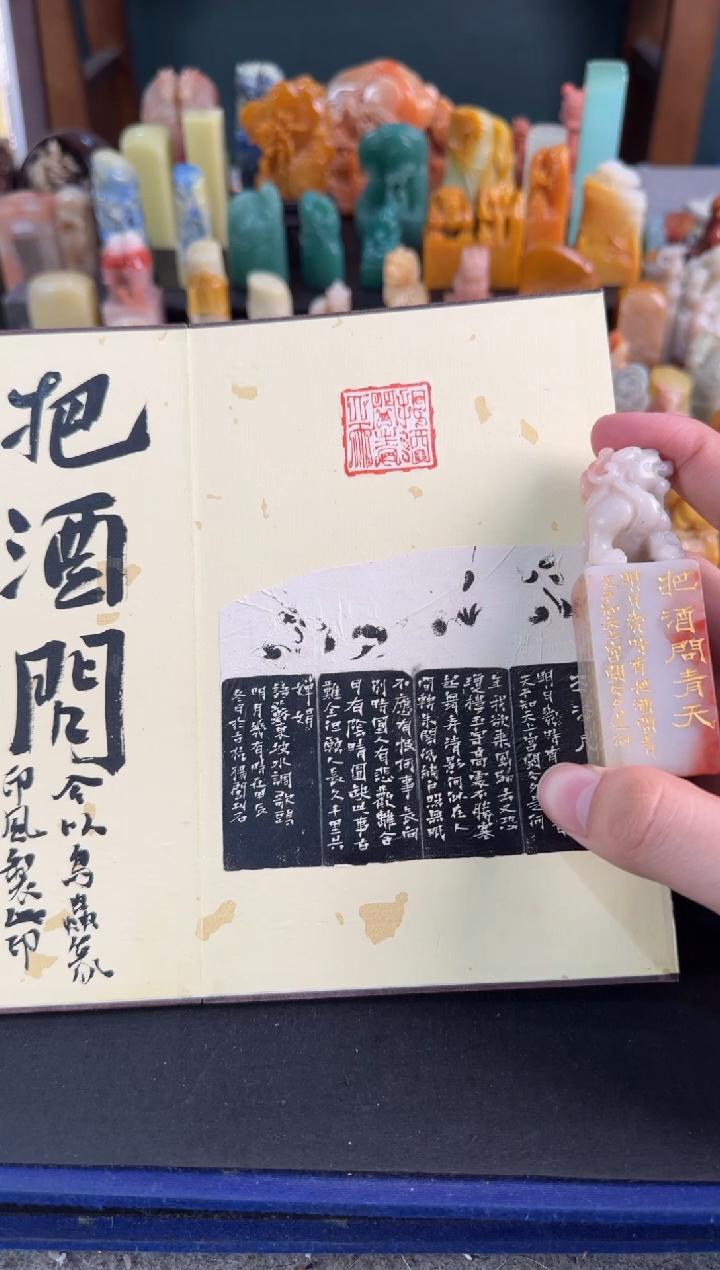 把酒問
今以鳥蟲篆
印風製此印
明月幾時有
天不知天上宮闕今夕是何
年我欲乘風歸去又恐
瓊樓玉宇高處不勝寒
起舞弄清影何似在人
間轉朱閣低綺戶照無眠
不應有恨何事長向
別時圓人有悲歡離合
月有陰晴圓缺此事古
難全但願人長久千里共
嬋娟
錄蘇東坡水調歌頭
明月幾有時在甲辰
把酒問青天
明月幾時有把酒問青
天不知天上宮闕今夕是何